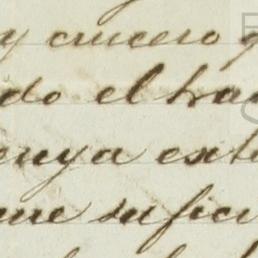 y crucero
do el tra
cuya exte
que sufici